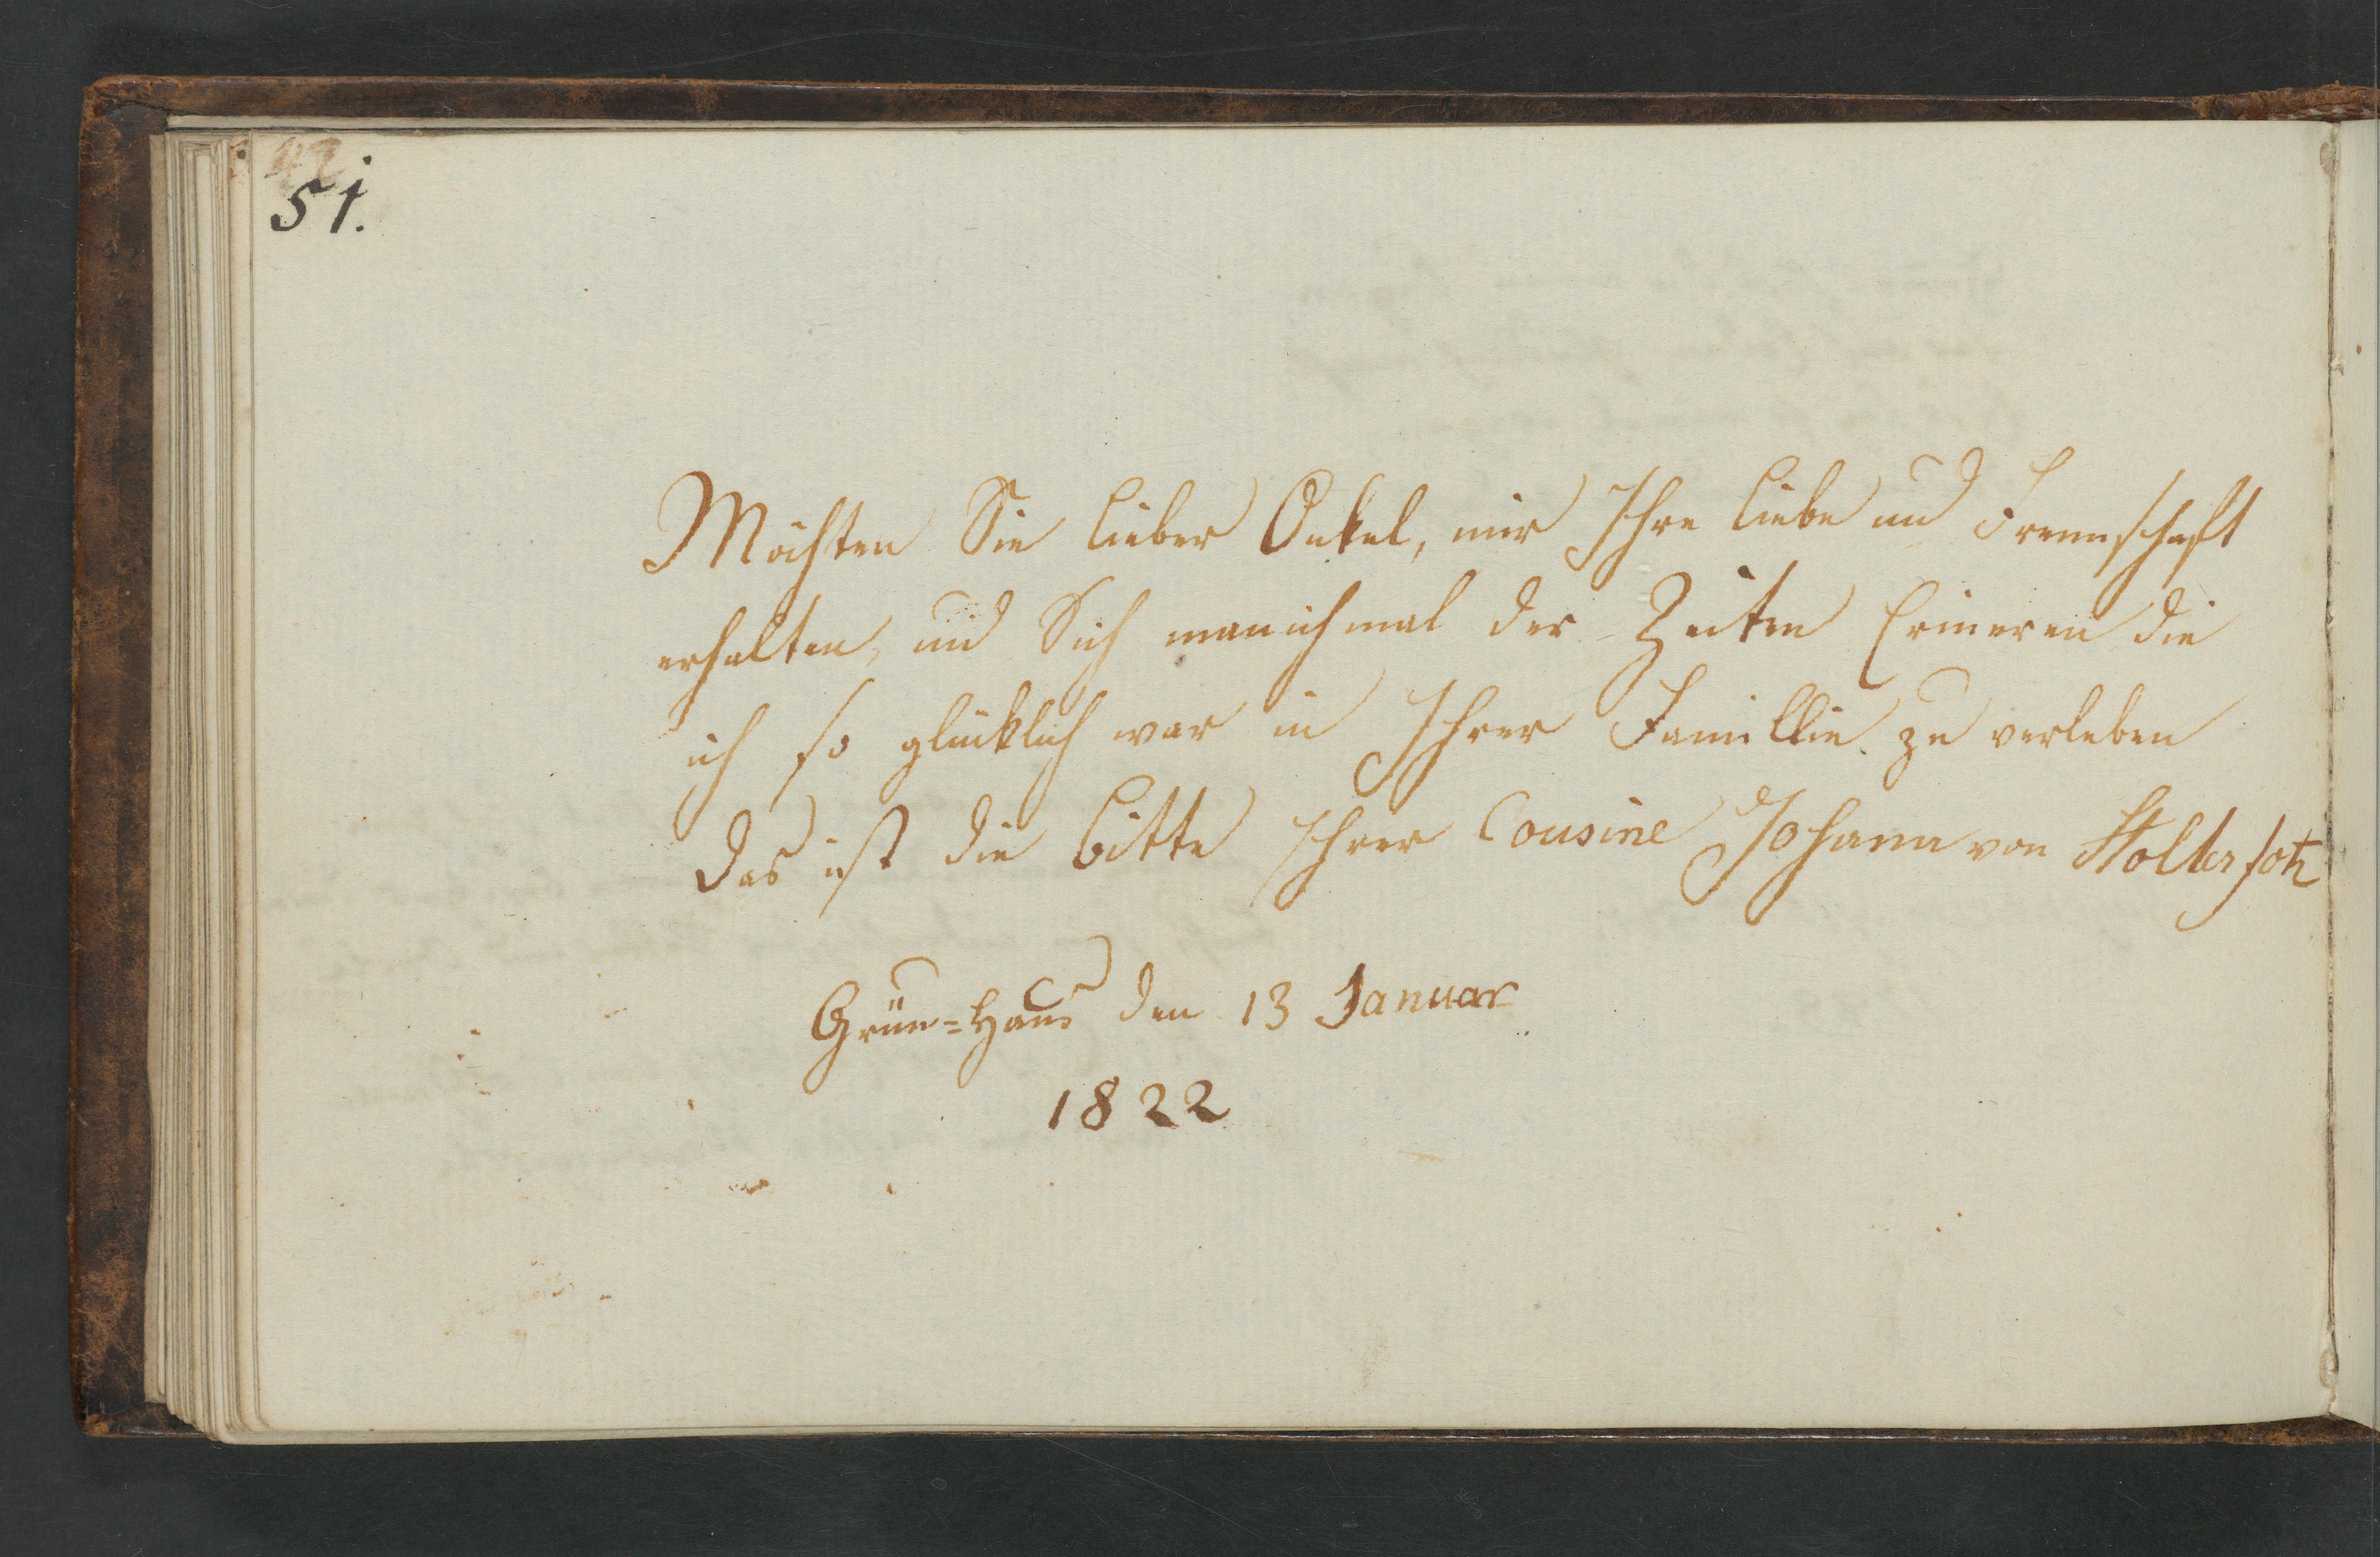 51.
Möchten Sie lieber Onkel, mir Ihre Liebe und Freunschaft
erhalten, und Sich manichmal der Zeiten Erineren die
ich so glücklich war in Ihrer Famillie zu verleben
das ist die bitte Ihrer Cousine Johann von Stolterfoht
Grün=Haus den 13 Januar
1822